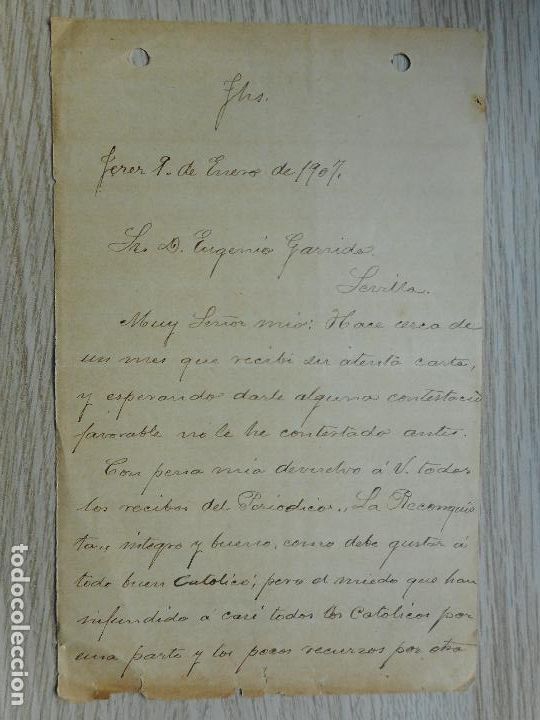 Jhs.
Jerez 9. de Enero de 1907.
Sr. D. Eugenio Garrido
Sevilla.
Muy Señor mio: Hace cerca de
un mes que recibi su atenta carta,
y esperando darle alguna contestació
favorable no le he contestado antes.
Con pena mia devuelvo á V. todos
los recibos del Periodico „La Reconquis
ta„ integro y bueno, como debe gustar á
todo buen Catolico; pero el miedo que han
infundido á casi todos los Catolicos por
una parte y los pocos recursos por otra
todocoleccion.net